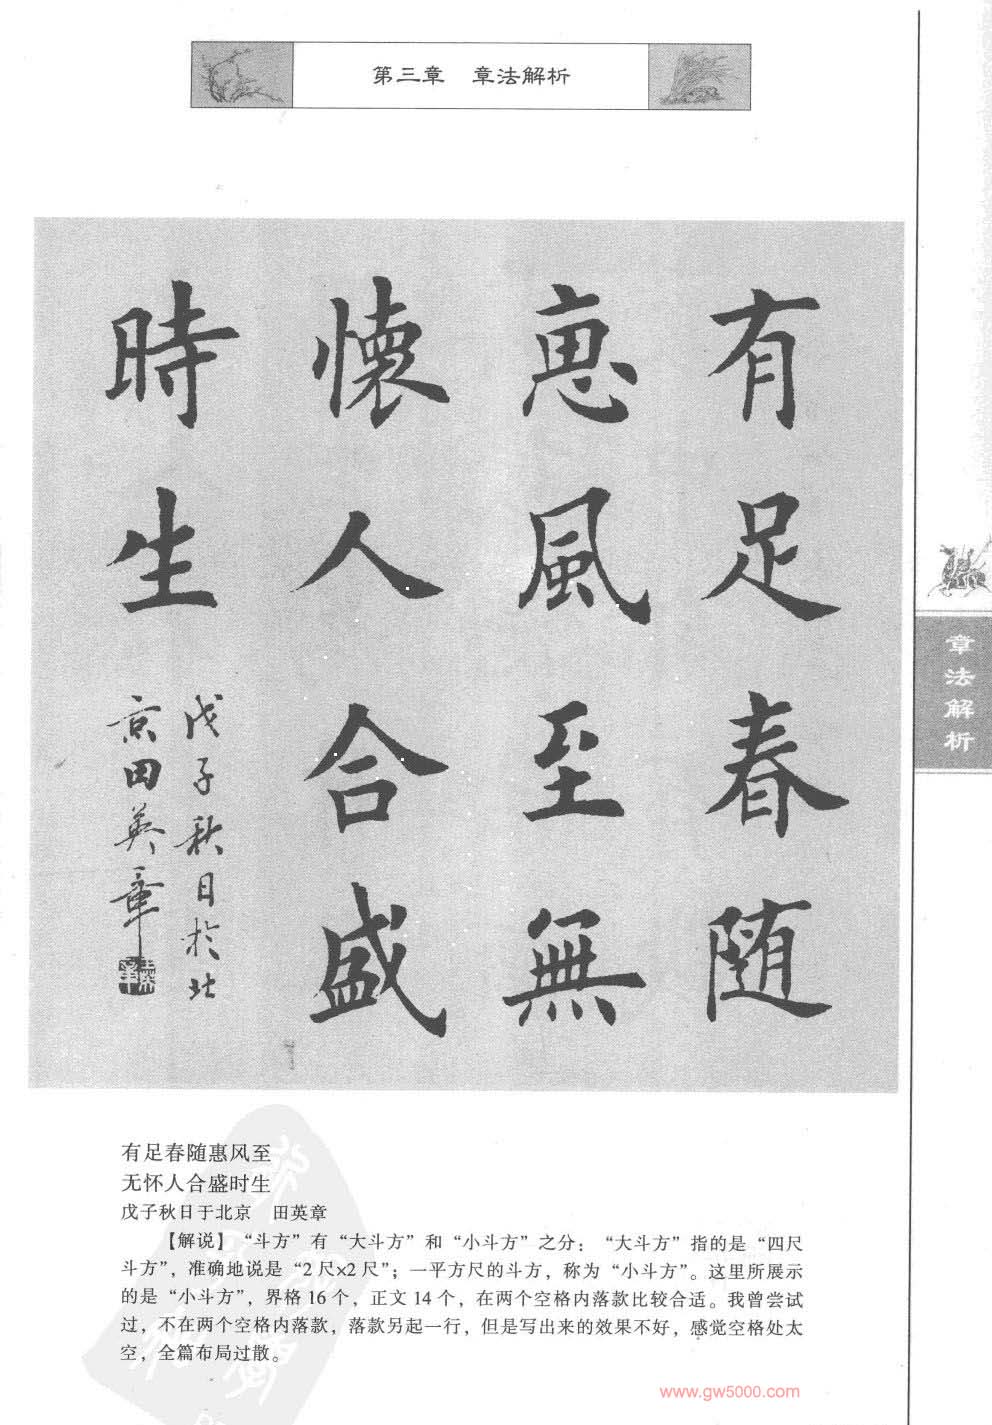 第三章 章法解析
有足春随
恵風至無
懷人合盛
時生
戊子秋日於北
京田英章
章法解析
有足春随惠风至
无怀人合盛时生
戊子秋日于北京 田英章
【解说】“斗方”有“大斗方”和“小斗方”之分：“大斗方”指的是“四尺
斗方”，准确地说是“2尺×2尺”；一平方尺的斗方，称为“小斗方”。这里所展示
的是“小斗方”，界格16个，正文14个，在两个空格内落款比较合适。我曾尝试
过，不在两个空格内落款，落款另起一行，但是写出来的效果不好，感觉空格处太
空，全篇布局过散。
www.gw5000.com